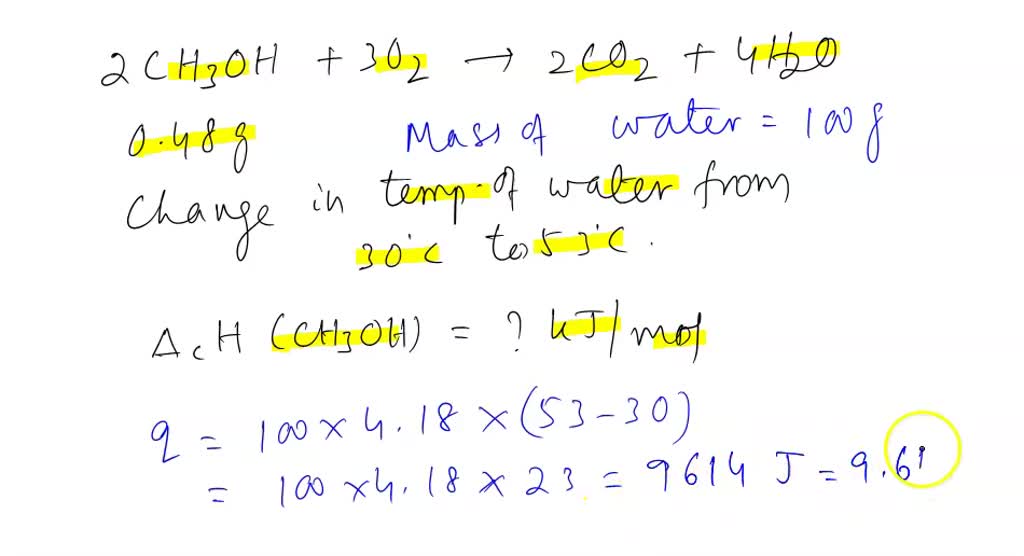 2CH3OH + 3O2 → 2CO2 + 4H2O
0.48g Mass of water = 100g
Change in temp. of water from
30°C to 53°C.
ΔcH (CH3OH) = ? kJ/mol
q = 100 × 4.18 × (53-30)
= 100 × 4.18 × 23 = 9614 J = 9.61